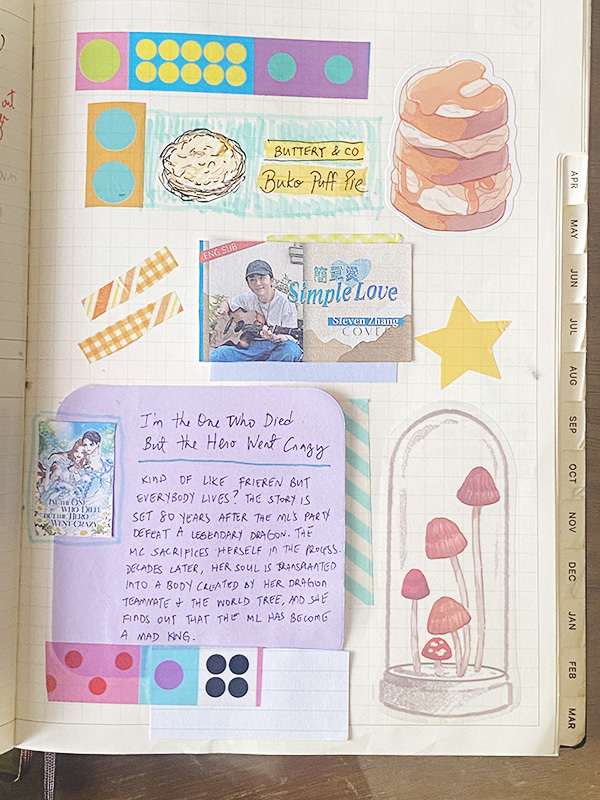 out
BUTTERY & CO
Buko Puff Pie
ENG SUB
簡單愛
Simple Love
Steven Zhang
COVER
I'm the One Who Died
But the Hero Went Crazy
I'M THE ONE
WHO DIED,
BUT THE HERO
WENT CRAZY
KIND OF LIKE FRIEREN BUT
EVERYBODY LIVES? THE STORY IS
SET 80 YEARS AFTER THE ML'S PARTY
DEFEAT A LEGENDARY DRAGON. THE
MC SACRIFICES HERSELF IN THE PROCESS.
DECADES LATER, HER SOUL IS TRANSPLANTED
INTO A BODY CREATED BY HER DRAGON
TEAMMATE & THE WORLD TREE, AND SHE
FINDS OUT THAT THE ML HAS BECOME
A MAD KING.
APR
MAY
JUN
JUL
AUG
SEP
OCT
NOV
DEC
JAN
FEB
MAR